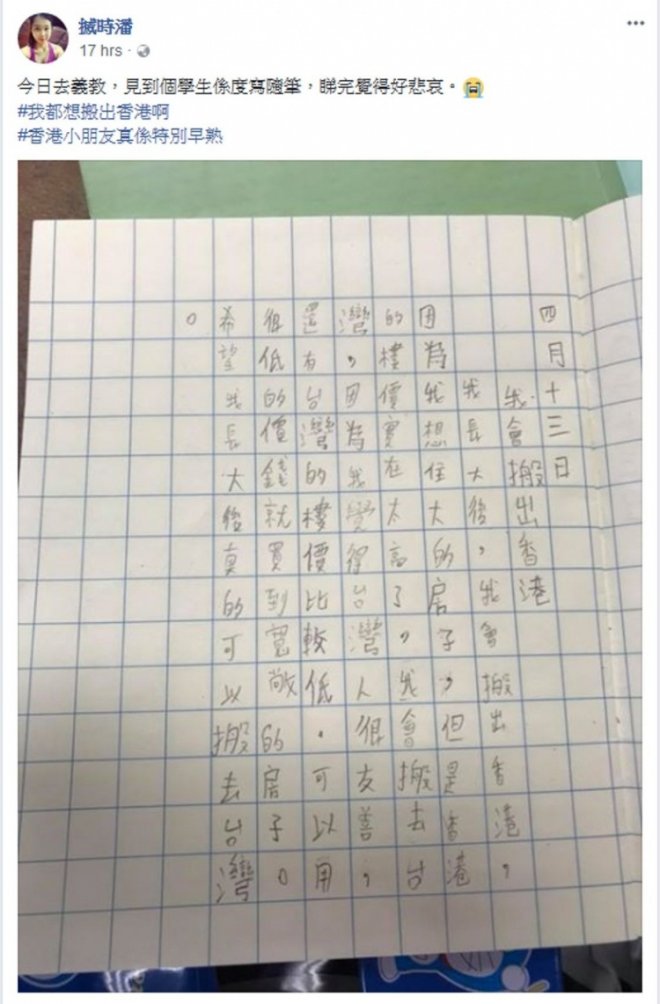 搣時潘
17 hrs
今日去義教，見到個學生係度寫隨筆，睇完覺得好悲哀。😭
#我都想搬出香港啊
#香港小朋友真係特別早熟
四月十三日
我會搬出香港
我長大後，我會搬出香港，
因為我想住大的房子，但是香港
的樓價實在太高了，我會搬去台
灣，因為我覺得台灣人很友善，
還有台灣的樓價比較低，可以用
很低的價錢就買到寬敞的房子。
希望我長大後真的可以搬去台灣
。